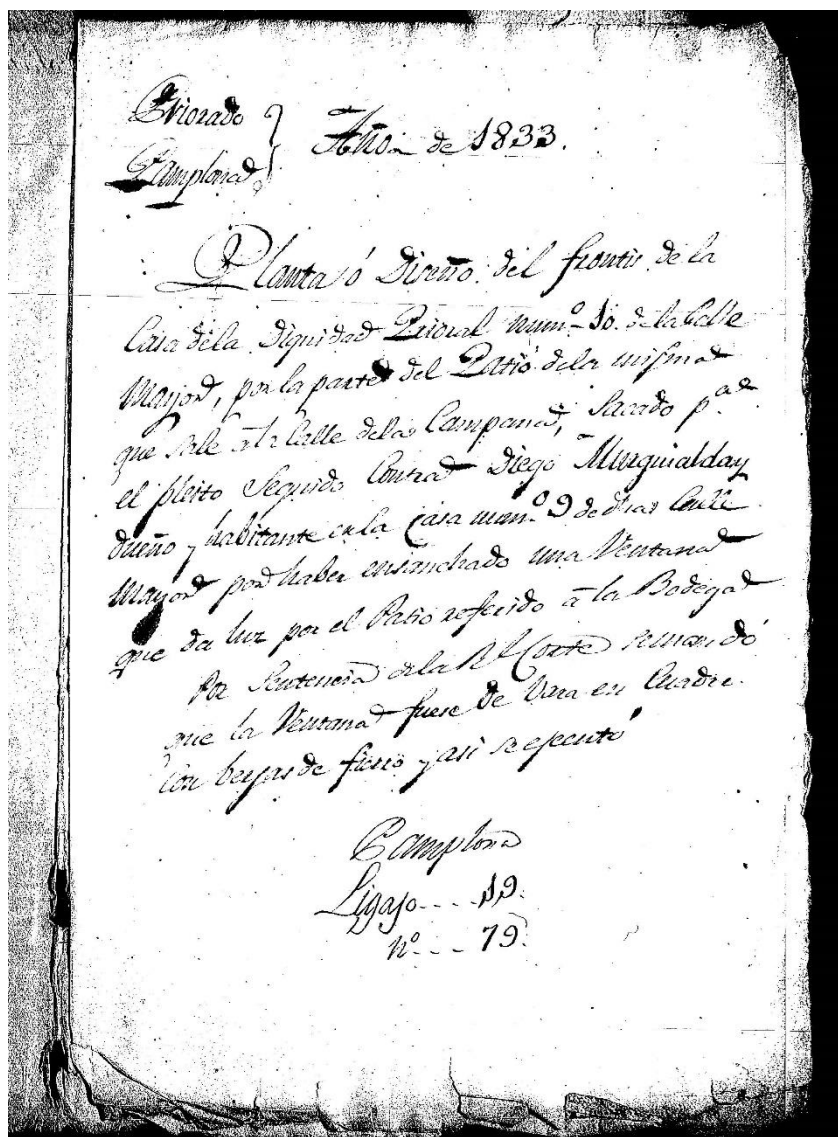 Priorado } Año de 1833.
Pamplona }
Planta, ó Diseño del frontis de la
Casa de la Dignidad Prioral num.º 10. de la Calle
Mayor, por la parte del Patio de la misma
que sale a la Calle de las Campanas, Sacado p.ª
el pleito Seguido Contra Diego Murguialday
dueño y habitante en la Casa num.º 9 de dha Calle
Mayor por haber ensanchado una Ventana
que da luz por el Patio referido á la Bodega
Por Sentencia de la Rl Corte se mandó
que la Ventana fuese de Vara en Cuadro
con berjas de fierro y asi se ejecutó
Pamplona
Ligajo---- 19.
nº--- 79.